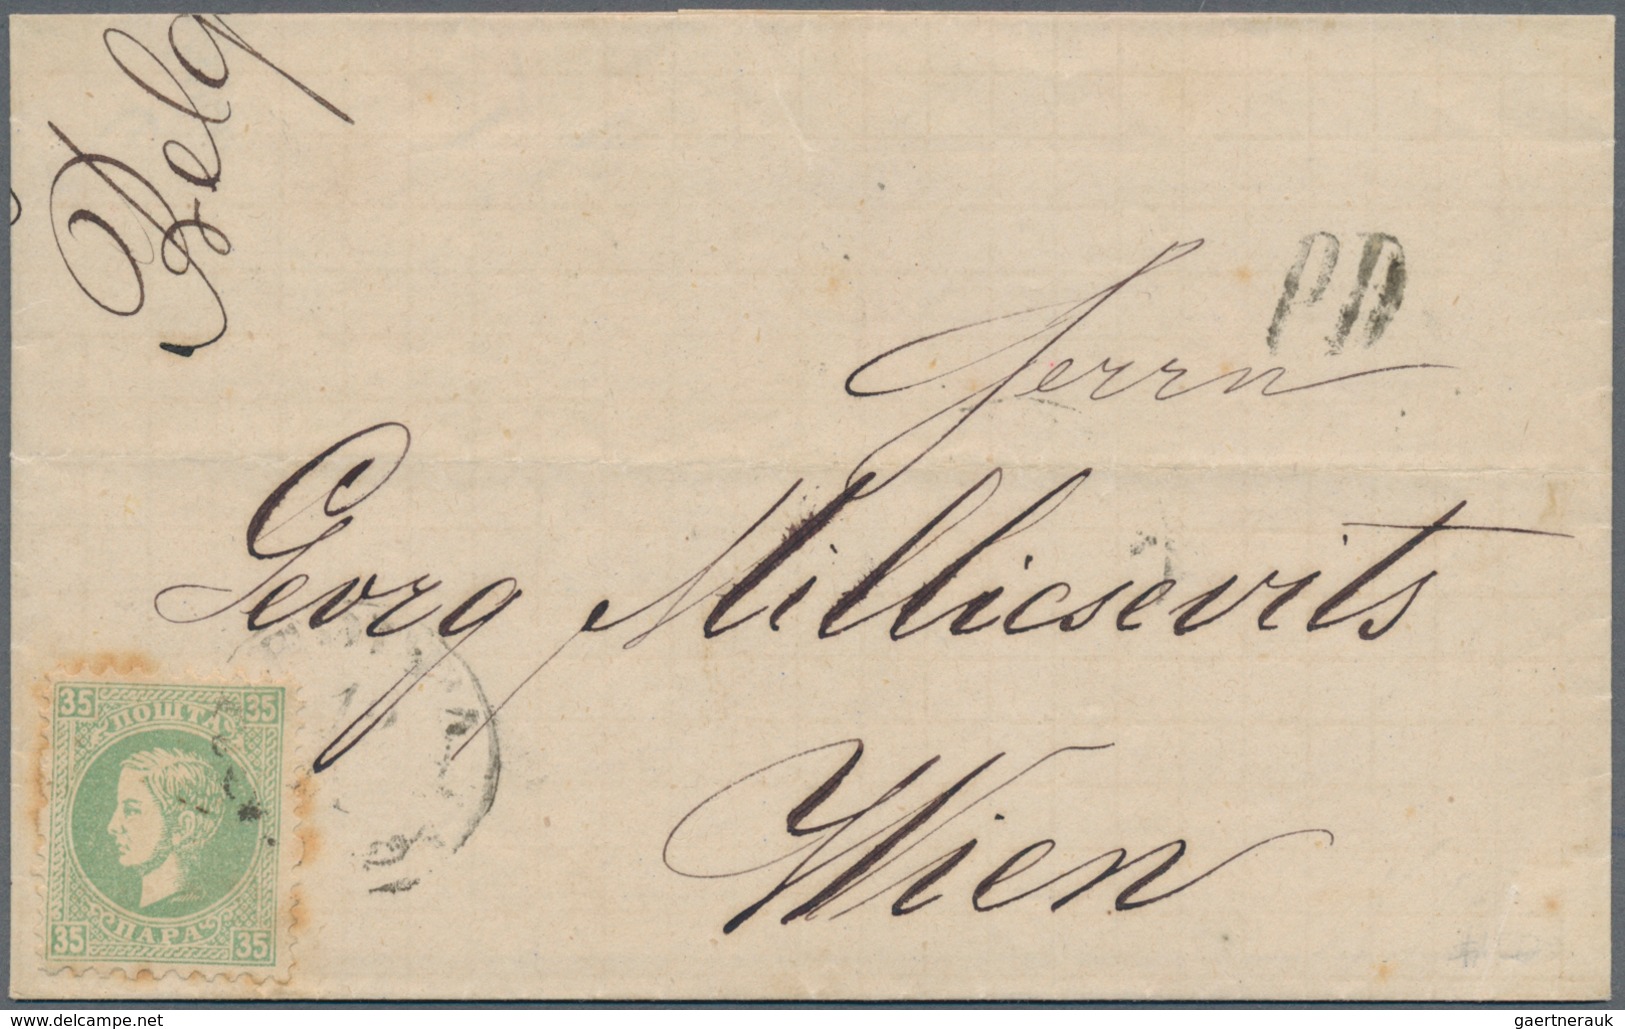 Belg
PD
Herrn
Georg Millicsevits
Wien
35 35
ПОШТА
ПАРА
35 35
www.delcampe.net
gaertnerauk